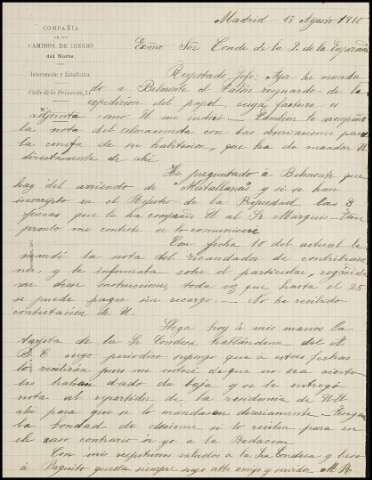 COMPAÑÍA
DE LOS
CAMINOS DE HIERRO
del Norte
Intervención y Estadística
Madrid 15 Agosto 1910
Exmo Sor Conde de la P. de la
Respetado Jefe: Ayer he manda
do a Belmonte el talón resguardo de la
expedición del papel cuya factura es
adjunta como U me indica. También le acompaño
la nota del
de su habitación, que ha de mandar U
directamente de ahí.
He preguntado á Belmonte que
hay del arriendo de "Matallana" y si se han
inscripto en el Registro de la Propiedad las 3
fincas que le ha comprado U al Sr Marqués. Tan
pronto me conteste se lo comunicaré
Con fecha 10 del actual le
mandé la nota del recaudador de contribucio
nes, y le informaba sobre el particular, rogándole
me diese instrucciones toda vez que hasta el 25
se puede pagar sin recargo. No he recibido
contestación de U.
Llega hoy á mis manos la
tarjeta de la Sra Condesa hablándome del A
B C cuyo periódico supongo que á estas fechas
lo recibirán, pues me
les habían dado de baja y se le entregó
nota al repartidor de la residencia de UU
ahí para que se lo mandasen diariamente. Tenga
la bondad de decirme si lo reciben para en
el caso contrario ir yo a la Redacción
Con mis respetuosos saludos á la Sra Condesa y besos
á Paquito queda siempre suyo affo amigo y